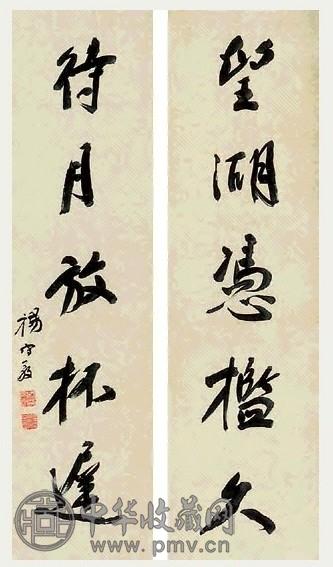 望湖憑檻久
待月放杯遲
楊守敬
中华收藏网
www.pmv.cn